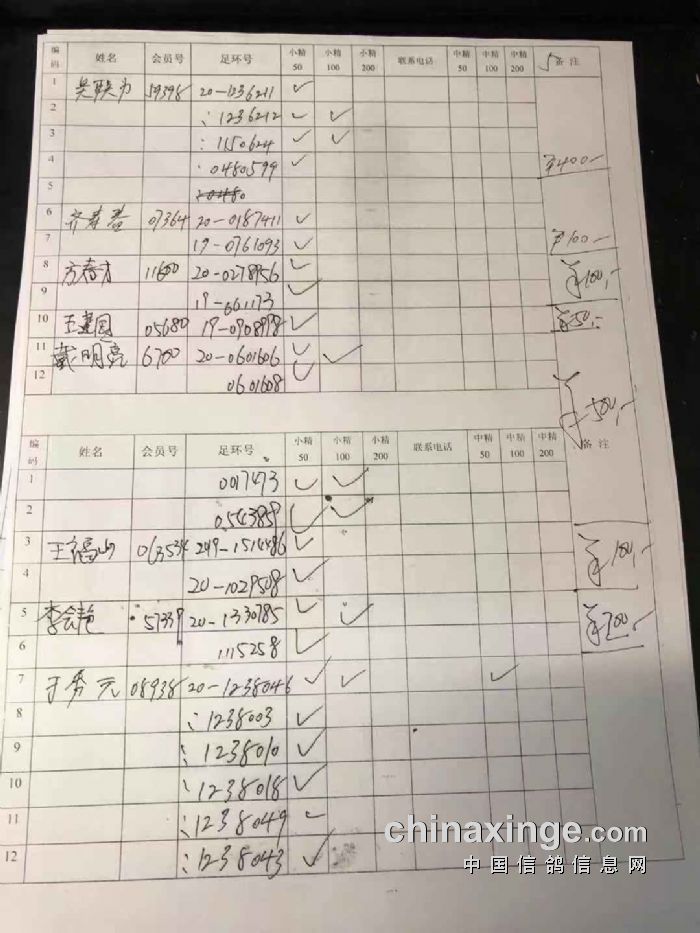 编码 姓名 会员号 足环号 小精50 小精100 小精200 联系电话 中精50 中精100 中精200 备注
1 吴联为 19398 20-1236211 ✓
2 :1236212 ✓ ✓
3 :1150624 ✓ ✓
4 :0480599 ✓ ¥400-
5
6 齐春益 07364 20-0187411 ✓
7 19-0761093 ✓ ¥100-
8 方春才 11600 20-0278956 ✓ ¥100,-
9 19-661173 ✓
10 王建国 05680 19-0908998 ✓ ¥50,-
11 戴明亮 6700 20-0601606 ✓ ✓
12 0601608 ✓ ¥500,-
编码 姓名 会员号 足环号 小精50 小精100 小精200 联系电话 中精50 中精100 中精200 备注
1 0017473 ✓ ✓
2 0543859 ✓ ✓
3 王福山 063534 ✓ ¥100,-
4 20-1029508 ✓
5 李会艳 57339 20-1330785 ✓ ✓ ¥200,-
6 1115258 ✓
7 于秀元 08938 20-1238046 ✓ ✓ ✓
8 :1238003 ✓
9 :1238010 ✓
10 :1238018 ✓
11 :1238049 ✓
12 :1238043 ✓
chinaxinge.com
中国信鸽信息网